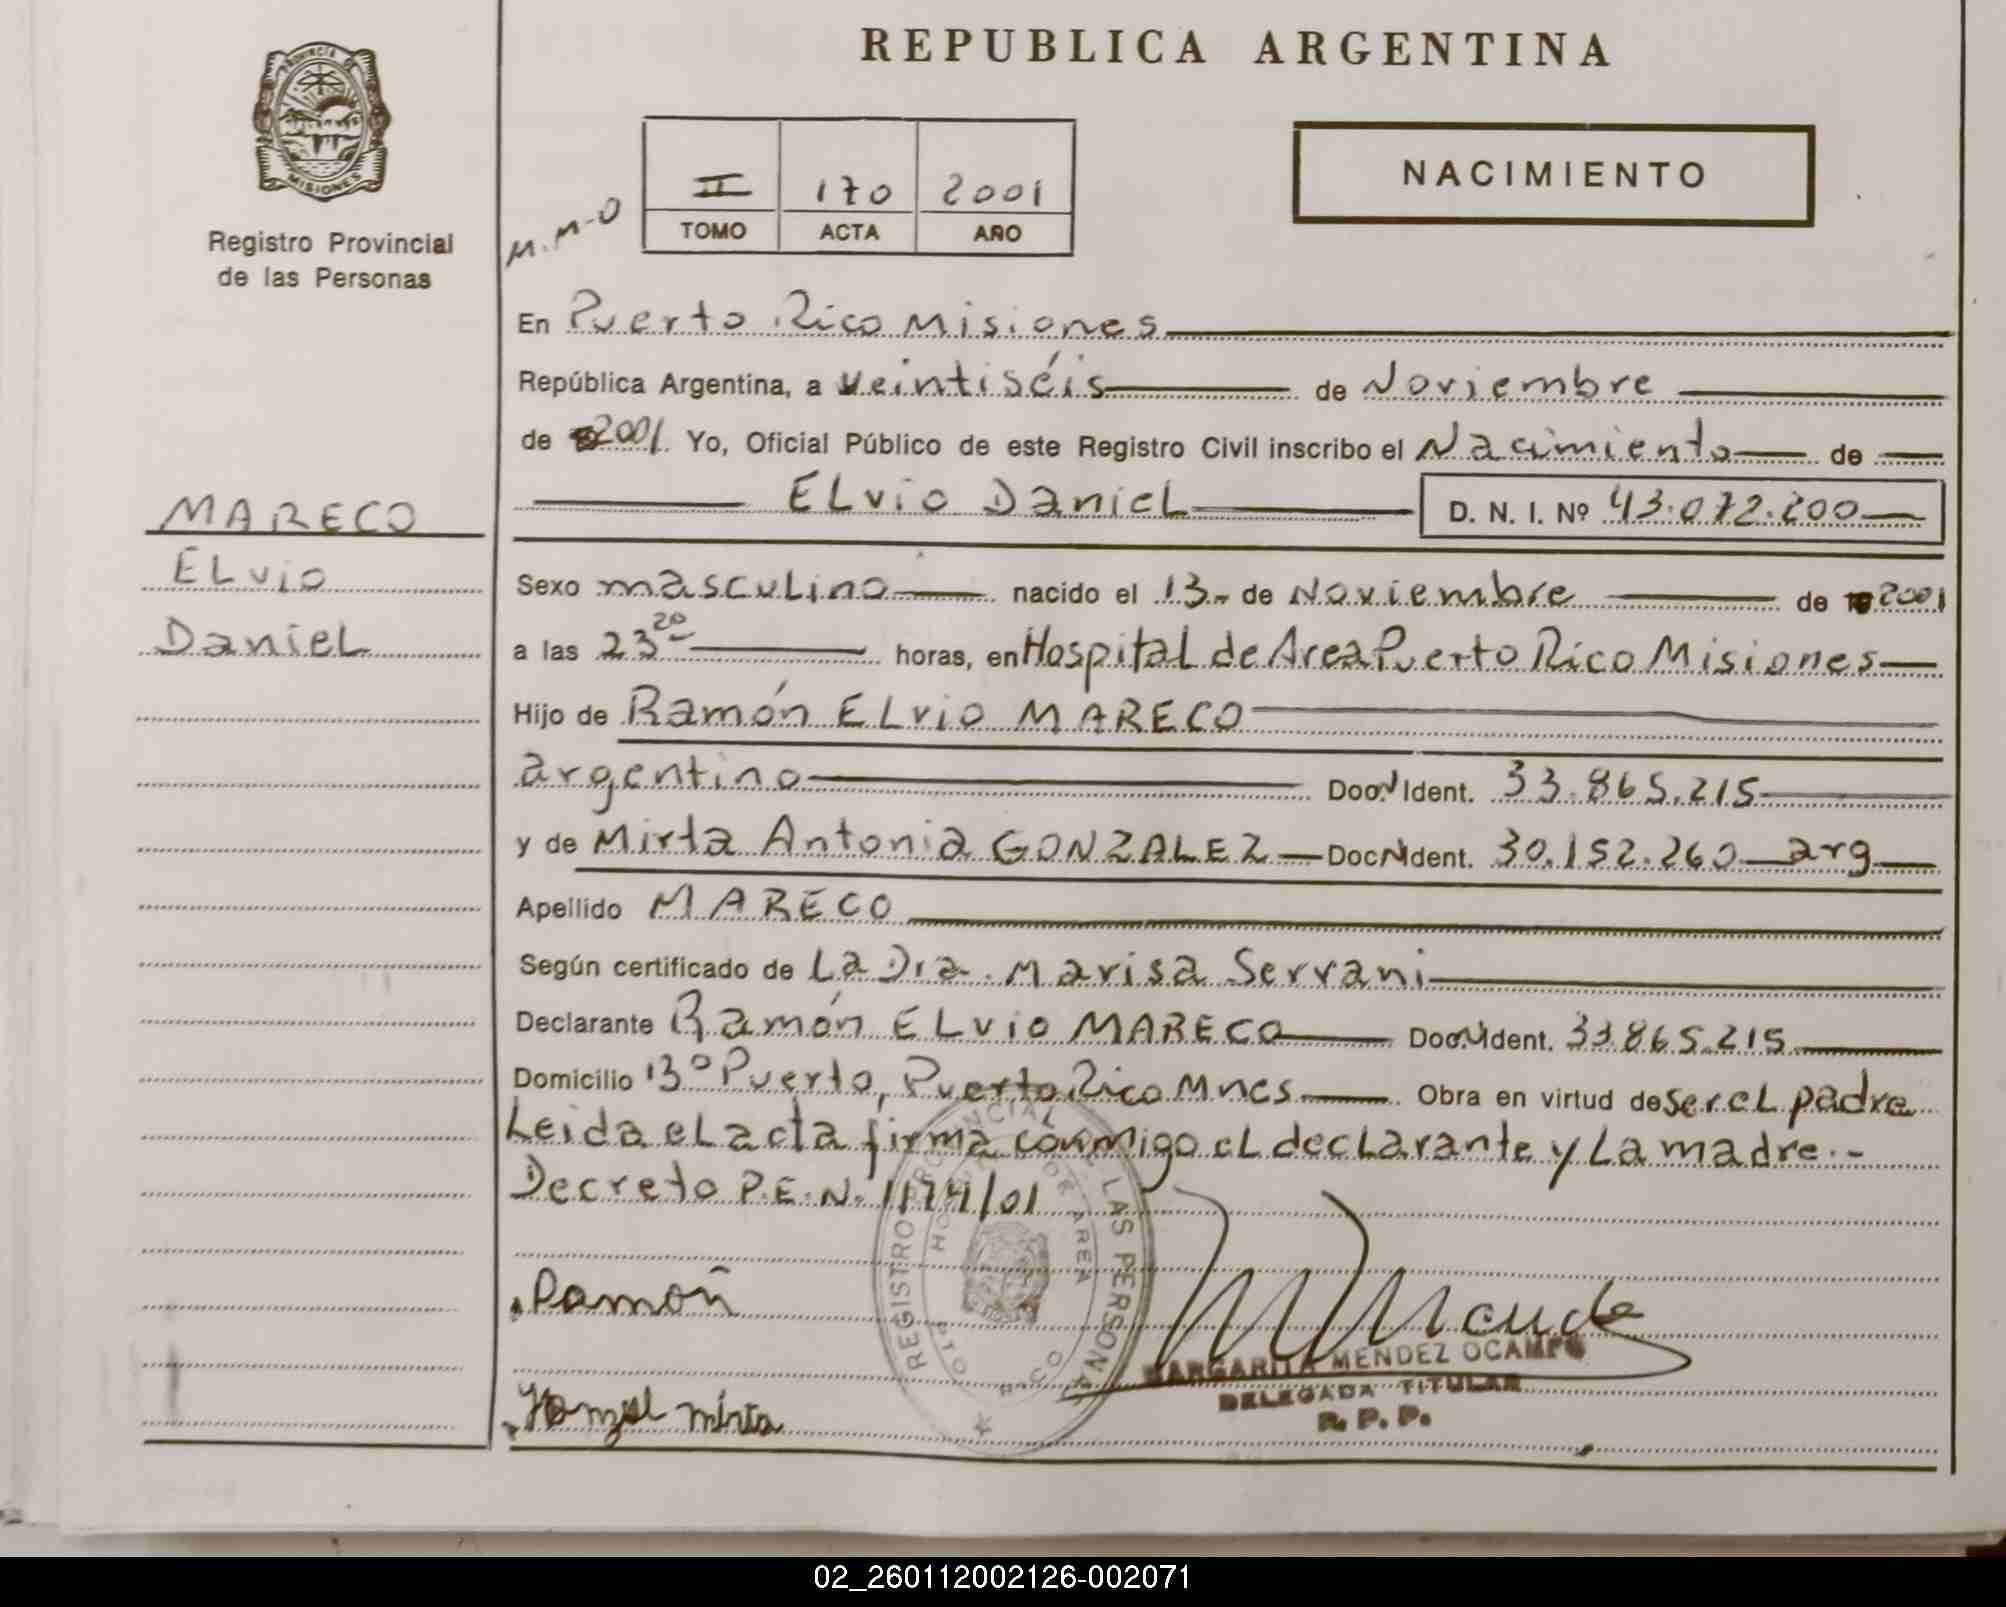 REPUBLICA ARGENTINA
PROVINCIA
MISIONES
Registro Provincial
de las Personas
M.M-O
II 170 2001
TOMO ACTA AÑO
NACIMIENTO
En Puerto Rico Misiones
República Argentina, a veintiséis de Noviembre
de 2001 Yo, Oficial Público de este Registro Civil inscribo el Nacimiento de
ELvio DanieL D. N. I. Nº 43.072.200
MARECO
ELvio
DanieL
Sexo mascuLino nacido el 13 de Noviembre de 2001
a las 23 20 horas, en HospitaL de Area Puerto Rico Misiones
Hijo de Ramón ELvio MARECO
argentino Doc. N Ident. 33.865.215
y de Mirta Antonia GONZALEZ Doc N Ident. 30.152.260 arg
Apellido MARECO
Según certificado de La Dra. Marisa Servani
Declarante Ramón ELvio MARECO Doc. N Ident. 33.865.215
Domicilio 13º Puerto, Puerto Rico Mnes Obra en virtud de ser eL padre
Leida eL acta firma conmigo eL decLarante y La madre.-
Decreto P.E.N. 1174/01
REGISTRO PROVINCIAL DE LAS PERSONAS
HOSPITAL DE AREA
PTO RICO
Ramón
MARGARITA MENDEZ OCAMPO
DELEGADA TITULAR
R. P. P.
mirta
02_260112002126-002071